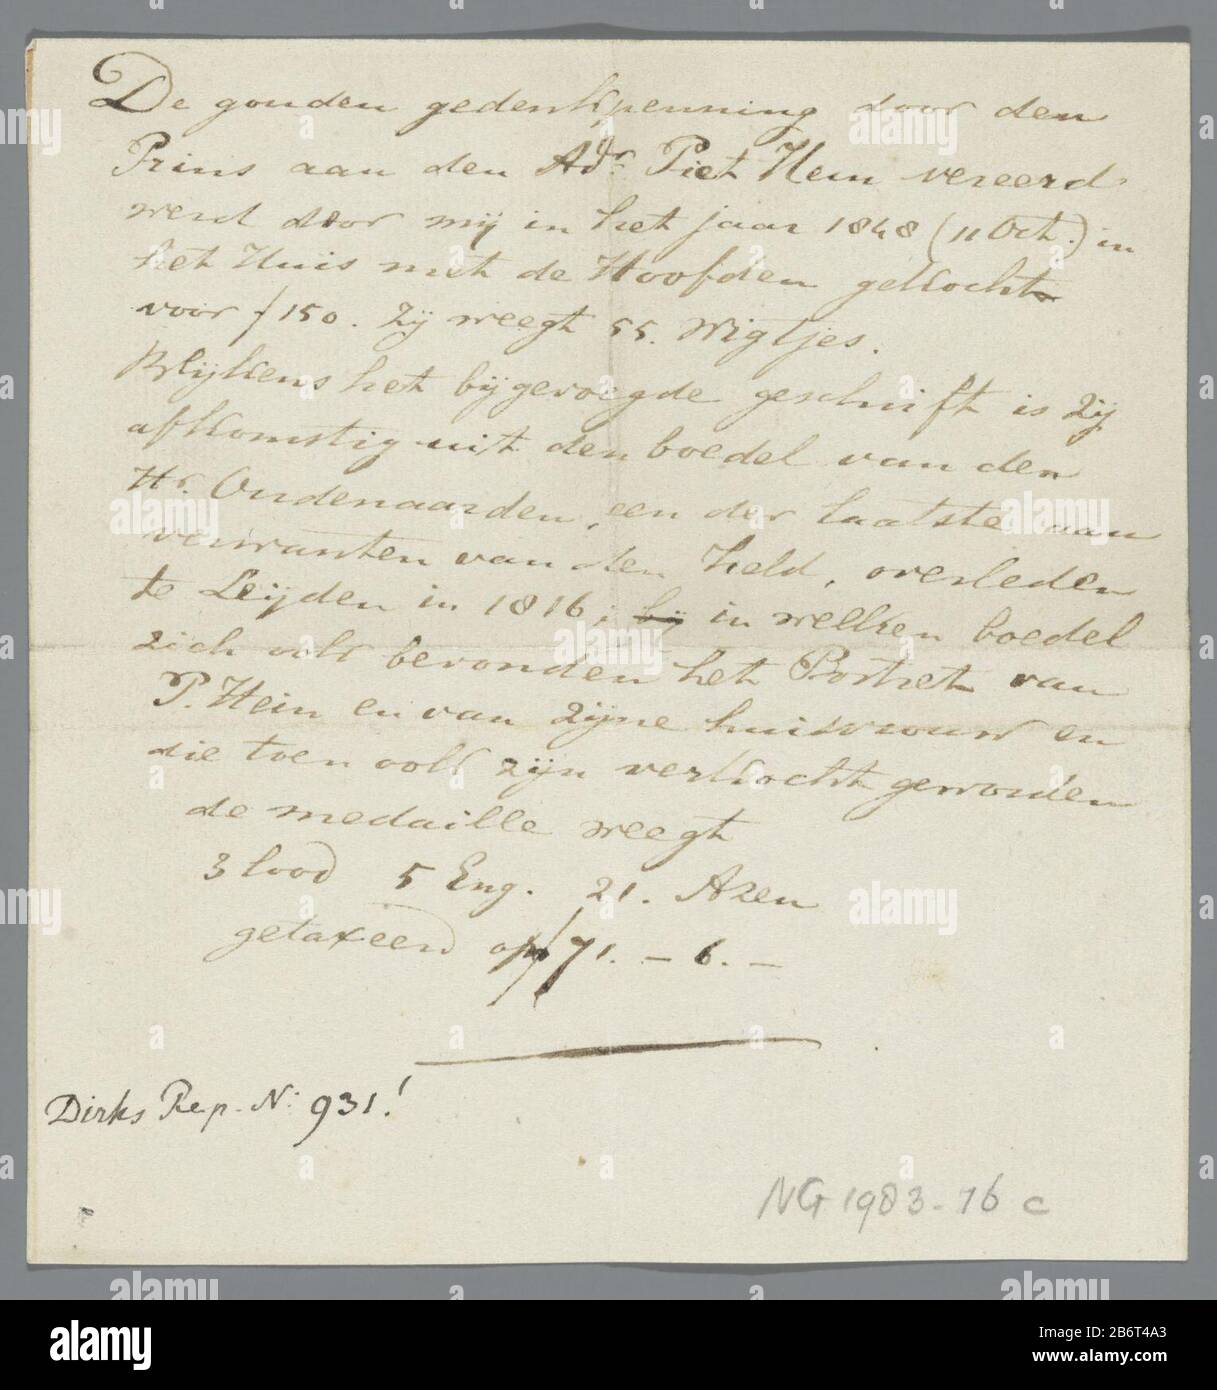 De gouden gedenkpenning door den
Prins aan den Adr. Piet Hein vereerd
werd door mij in het jaar 1848 (11 Oct.) in
het Huis met de Hoofden gekocht
voor f 150. Zij weegt 55. Wigtjes.
Blijkens het bijgevoegde geschrift is zij
afkomstig uit den boedel van den
Hr. Oudenaarden, een der laatste aan
verwanten van den held, overleden
te Leijden in 1816, bij in welken boedel
zich ook bevonden het Portret van
P. Hein en van zijne huisvrouw en
die toen ook zijn verkocht geworden
de medaille weegt
3 lood 5 Eng. 21. Azen
getaxeerd op f 71. – 6. –
Dirks Rep. No: 931!
NG 1983-76 c
alamy
Image ID: 2B6T4A3
www.alamy.com